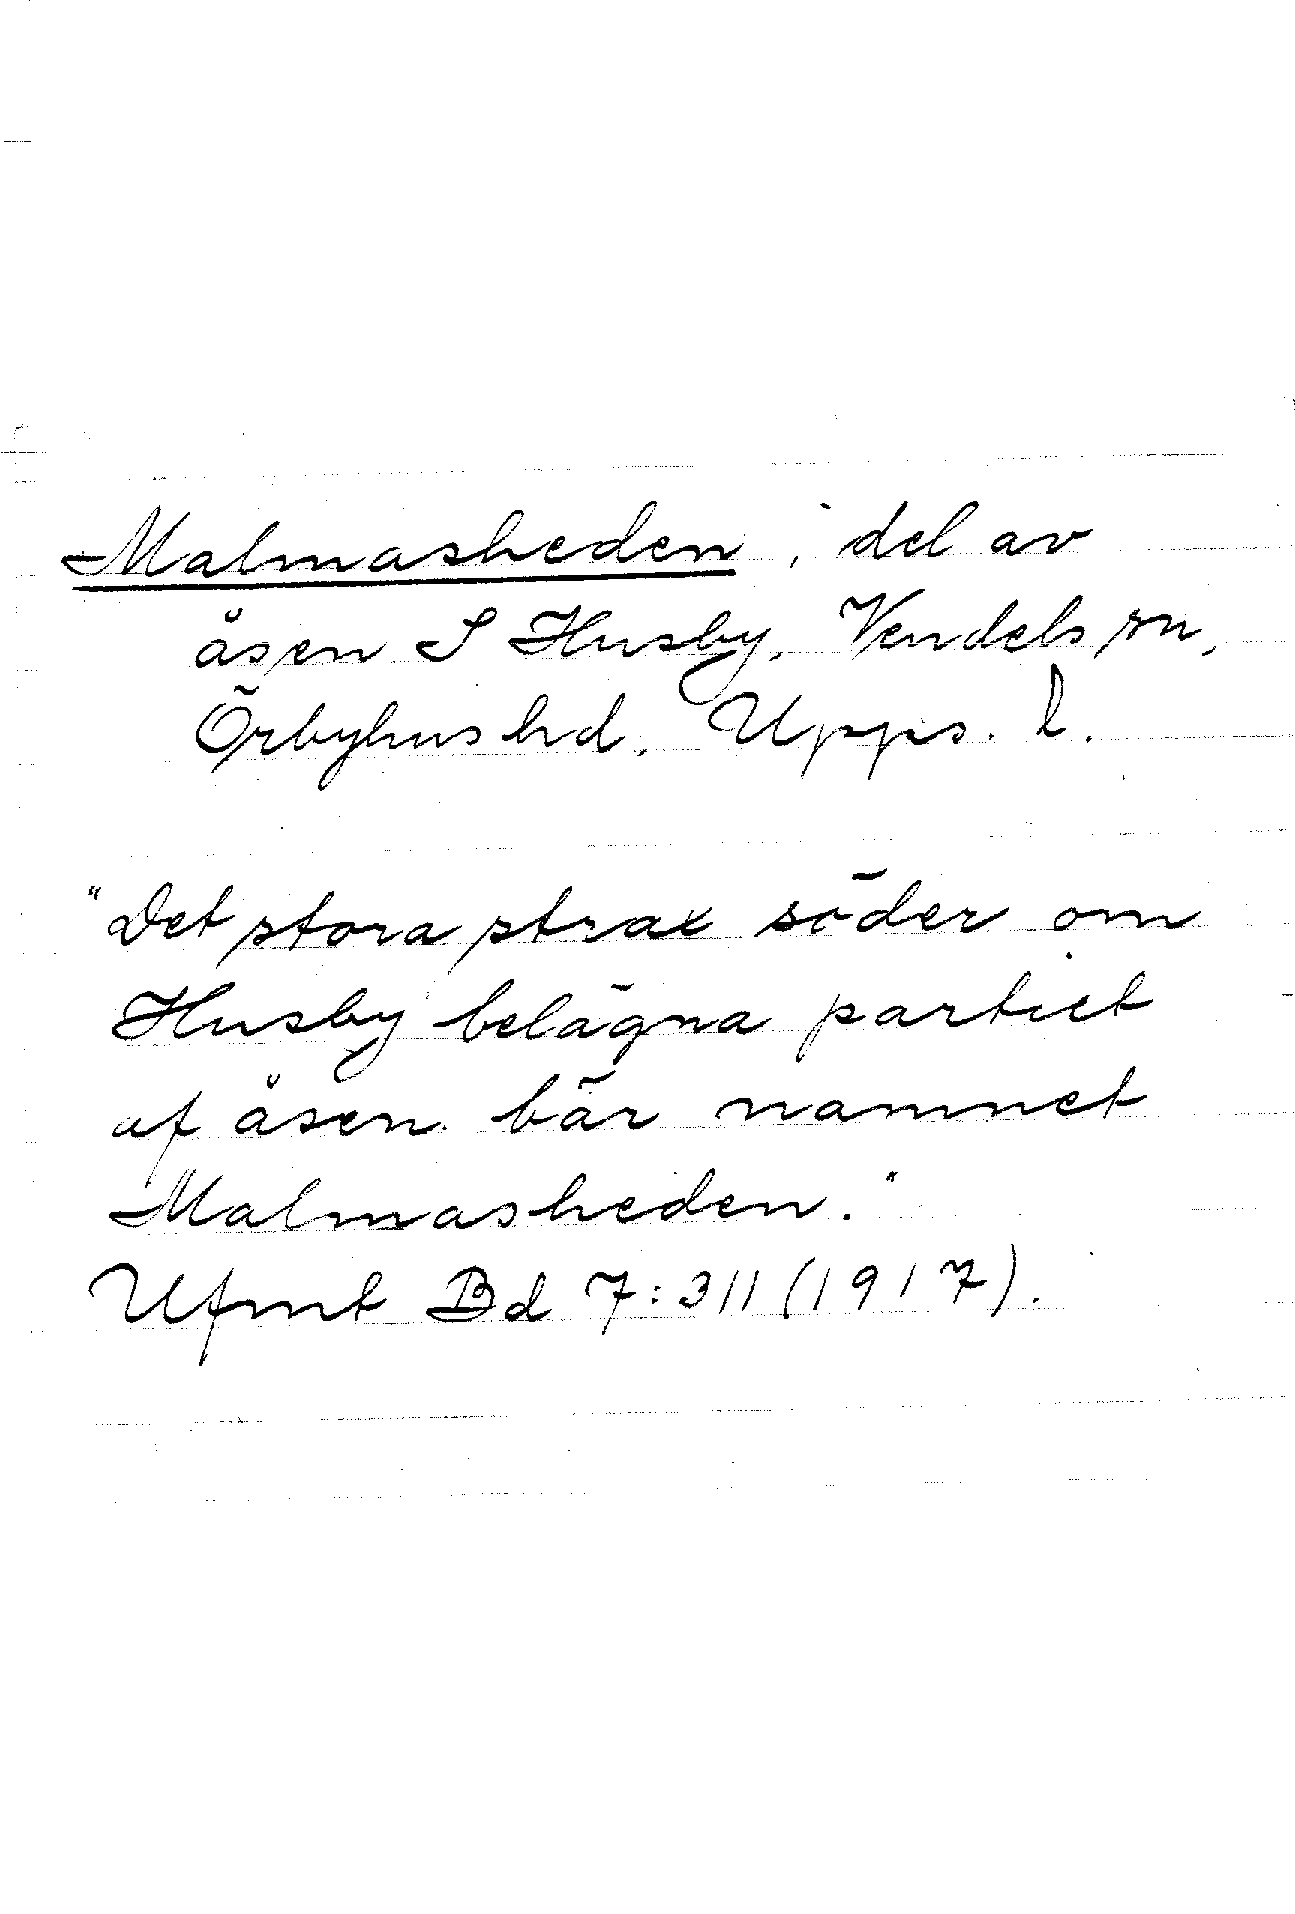 Malmasheden, del av
åsen S Husby, Vendels sn,
Örbyhus hd, Upps. l.
"Det stora strax söder om
Husby belägna partiet
af åsen bär namnet
Malmasheden."
Ufmt Bd 7:311 (1917).